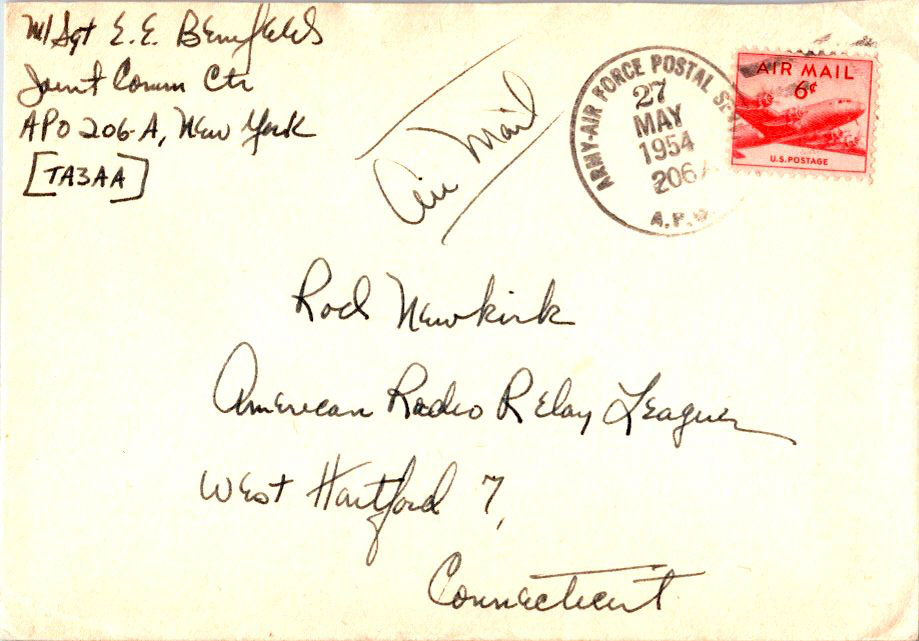 M/Sgt E. E. Benefields
Joint Comm Ctr
APO 206-A, New York
[TA3AA]
Air Mail
ARMY-AIR FORCE POSTAL
27
MAY
1954
206A
A.P.O
AIR MAIL
6¢
U.S. POSTAGE
Rod Newkirk
American Radio Relay League
West Hartford 7,
Connecticut